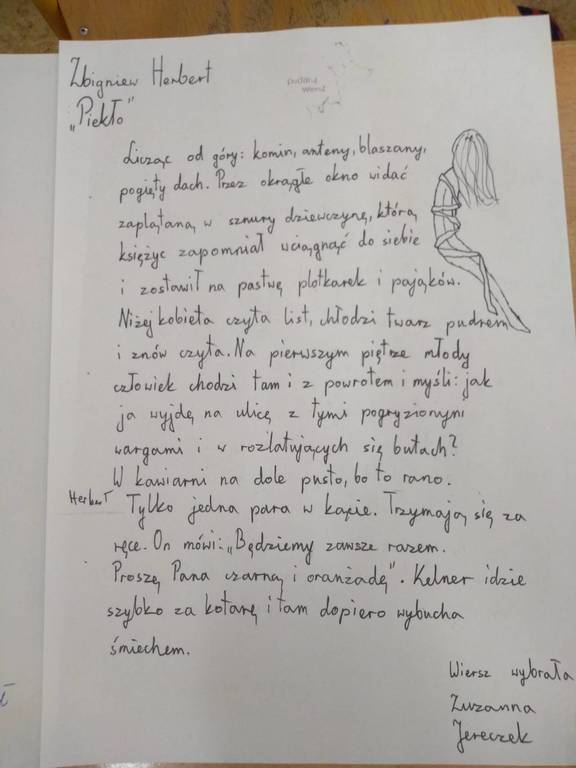 Zbigniew Herbert
„Piekło"
Licząc od góry: komin, anteny, blaszany,
pogięty dach. Przez okrągłe okno widać
zaplątaną w sznury dziewczynę, którą
księżyc zapomniał wciągnąć do siebie
i zostawił na pastwę plotkarek i pająków.
Niżej kobieta czyta list, chłodzi twarz pudrem
i znów czyta. Na pierwszym piętrze młody
człowiek chodzi tam i z powrotem i myśli: jak
ja wyjdę na ulicę z tymi pogryzionymi
wargami i w rozlatujących się butach?
W kawiarni na dole pusto, bo to rano.
Herbert Tylko jedna para w kącie. Trzymają się za
ręce. On mówi: „Będziemy zawsze razem.
Proszę Pana czarną i oranżadę". Kelner idzie
szybko za kotarę i tam dopiero wybucha
śmiechem.
Wiersz wybrała
Zuzanna
Jereczek